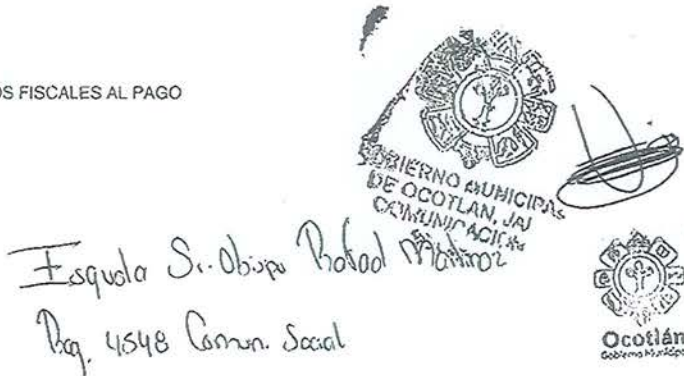 OS FISCALES AL PAGO
GOBIERNO MUNICIPAL
DE OCOTLAN, JAL
COMUNICACION
Esquela Sr. Obispo Rafael Martinez
Req. 4548 Comun. Social
Ocotlán
Gobierno Municipal